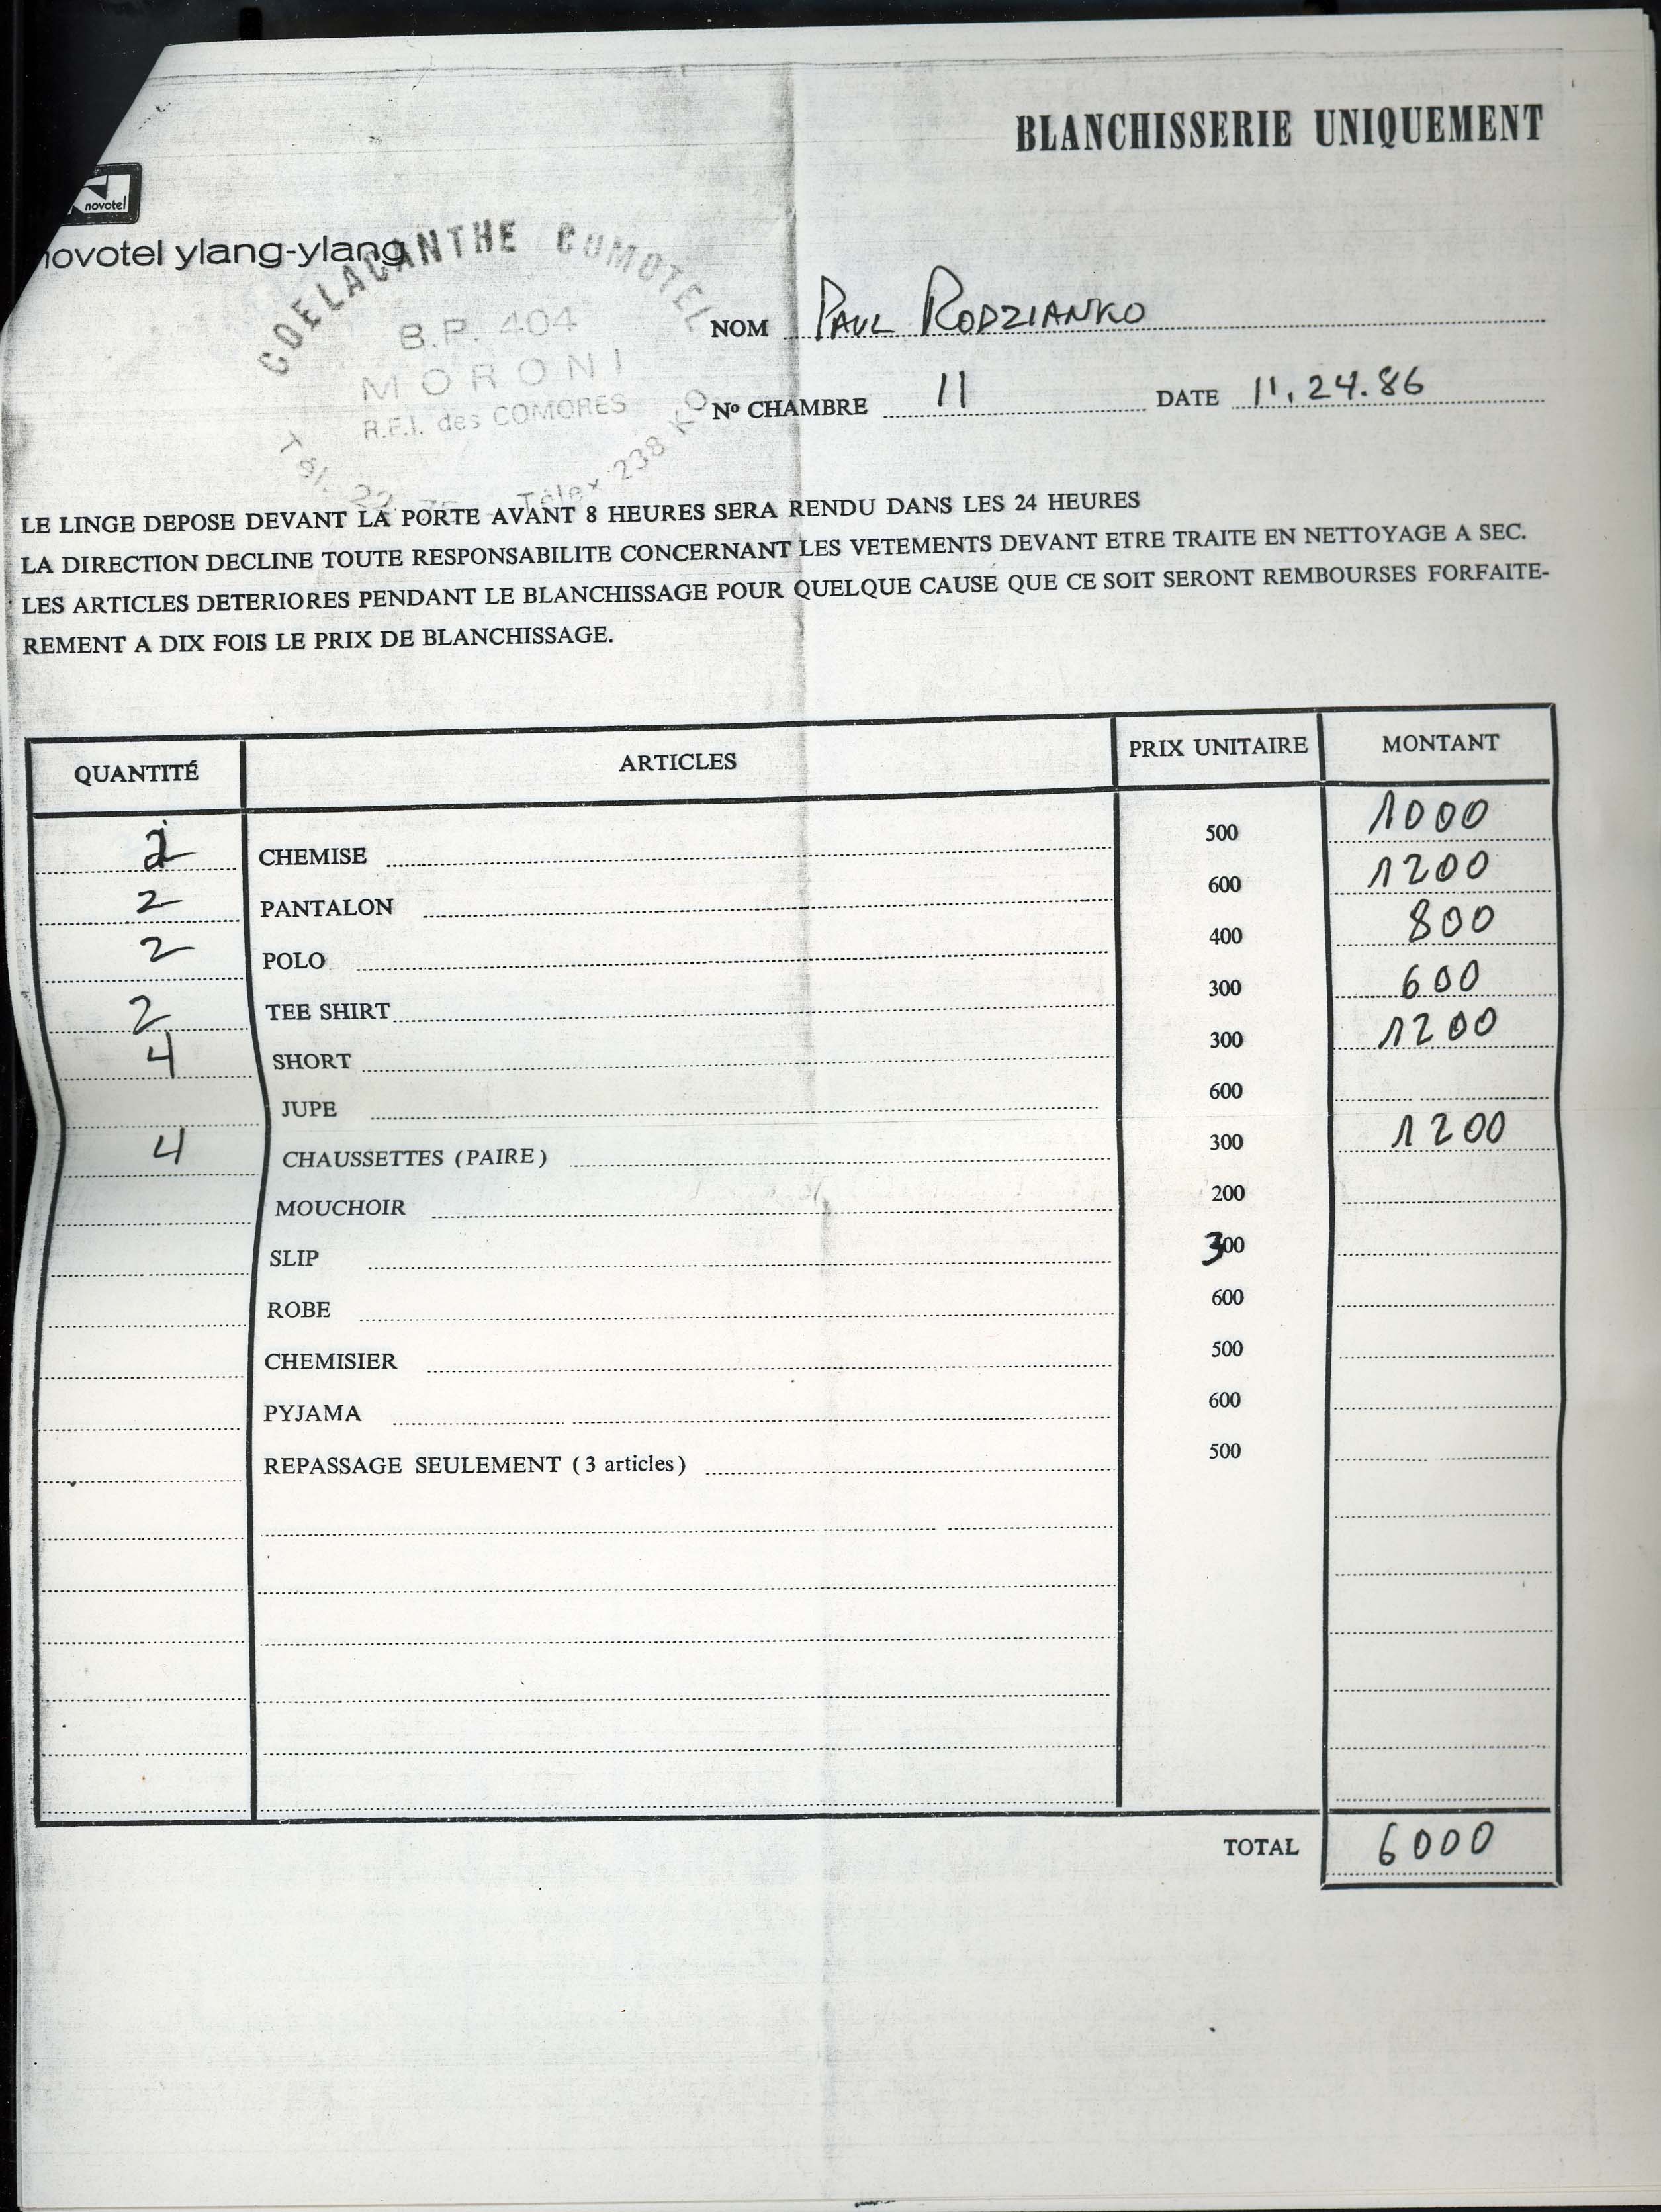 BLANCHISSERIE UNIQUEMENT
novotel
novotel ylang-ylang
COELACANTHE COMOTEL
B.P. 404
MORONI
R.F.I. des COMORES
Tél. Télex 238 KO
NOM PAUL RODZIANKO
Nº CHAMBRE 11 DATE 11.24.86
LE LINGE DEPOSE DEVANT LA PORTE AVANT 8 HEURES SERA RENDU DANS LES 24 HEURES
LA DIRECTION DECLINE TOUTE RESPONSABILITE CONCERNANT LES VETEMENTS DEVANT ETRE TRAITE EN NETTOYAGE A SEC.
LES ARTICLES DETERIORES PENDANT LE BLANCHISSAGE POUR QUELQUE CAUSE QUE CE SOIT SERONT REMBOURSES FORFAITE-
REMENT A DIX FOIS LE PRIX DE BLANCHISSAGE.
QUANTITÉ ARTICLES PRIX UNITAIRE MONTANT
2 CHEMISE 500 1000
2 PANTALON 600 1200
2 POLO 400 800
2 TEE SHIRT 300 600
4 SHORT 300 1200
JUPE 600
4 CHAUSSETTES (PAIRE) 300 1200
MOUCHOIR 200
SLIP 300
ROBE 600
CHEMISIER 500
PYJAMA 600
REPASSAGE SEULEMENT (3 articles) 500
TOTAL 6000